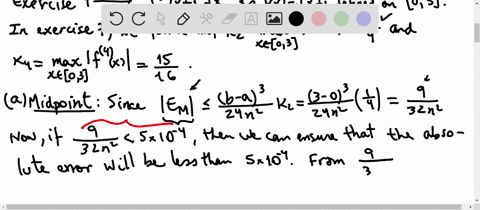 Exercise 1
on [0,3].
In exercise
x∈[0,3] 4 and
K₄ = max |f⁽⁴⁾(x)| = 15/16.
x∈[0,3]
(a) Midpoint: Since |E_M| ≤ (b-a)³/24n² K₂ = (3-0)³/24n² (1/4) = 9/32n²
Now, if 9/32n² < 5×10⁻⁴, then we can ensure that the abso-
lute error will be less than 5×10⁻⁴. From 9/3